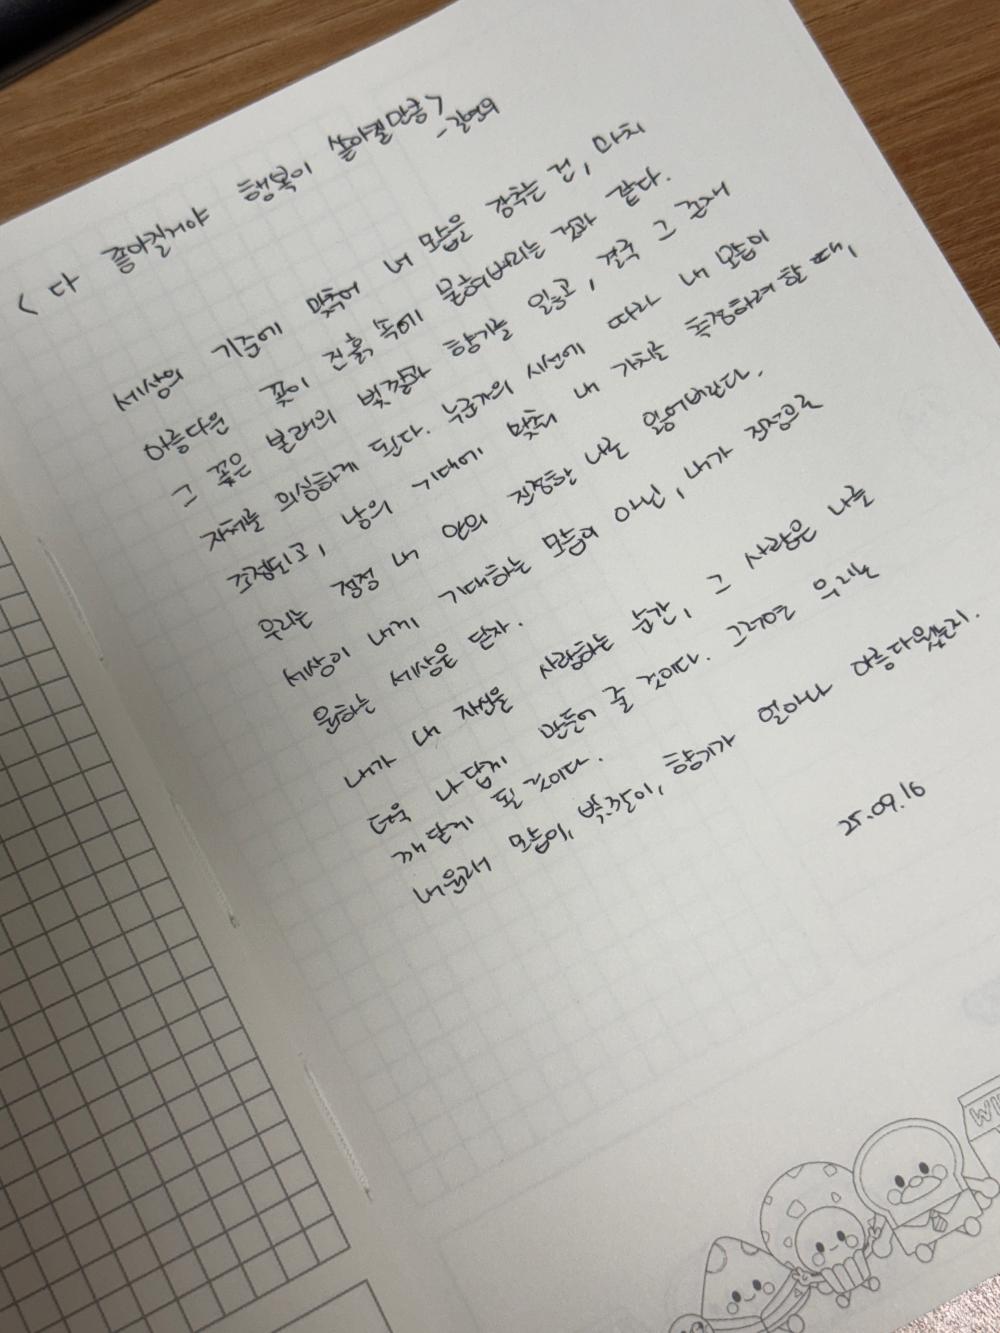 <다 좋아질거야 행복이 쏟아질만큼>
- 길연우
세상의 기준에 맞추어 내 모습을 감추는 건, 마치
아름다운 꽃이 진흙 속에 묻혀버리는 것과 같다.
그 꽃은 본래의 빛깔과 향기를 잃고, 결국 그 존재
자체를 의심하게 된다. 누군가의 시선에 따라 내 모습이
조정되고, 남의 기대에 맞춰 내 가치를 측정하려 할 때,
우리는 점점 내 안의 진정한 나를 잃어버린다.
세상이 내게 기대하는 모습이 아닌, 내가 진정으로
원하는 세상을 담자.
내가 내 자신을 사랑하는 순간, 그 사랑은 나를
더욱 나답게 만들어 줄 것이다. 그러면 우리는
깨닫게 될 것이다.
내 원래 모습이, 빛깔이, 향기가 얼마나 아름다웠는지.
25.09.16